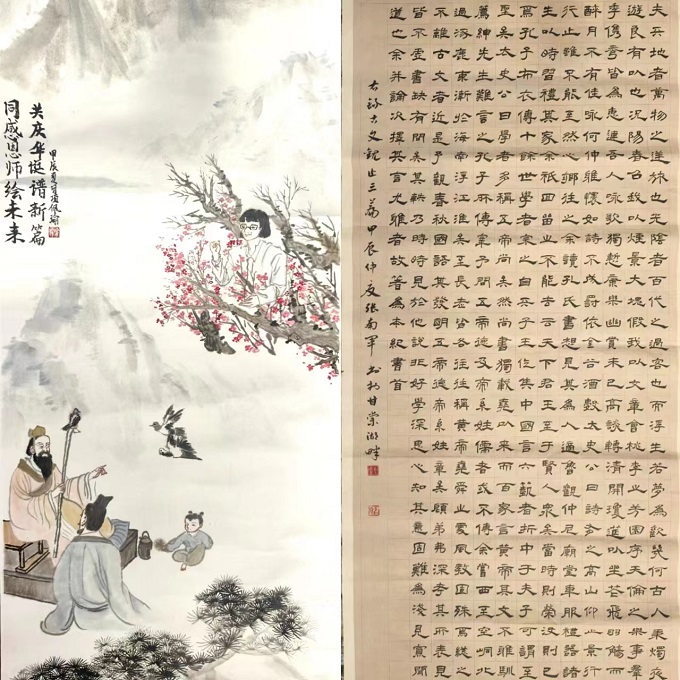 共庆华诞谱新篇
同感恩师绘未来
夫天地者萬物之逆旅也光陰者百代之過客也而浮生若夢為歡幾何古人秉燭夜
遊良有以也況陽春召我以煙景大塊假我以文章會桃李之芳園序天倫之樂事群
季俊秀皆為惠連吾人咏歌獨慚康樂幽賞未已高談轉清開瓊筵以坐花飛羽觴而
醉月不有佳咏何伸雅懷如詩不成罰依金谷酒數太史公曰詩有之高山仰止景行
行止雖不能至然心鄉往之余讀孔氏書想見其為人適魯觀仲尼廟堂車服禮器諸
生以時習禮其家余祗回留之不能去云天下君王至于賢人眾矣當時則榮沒則已
焉孔子布衣傳十餘世學者宗之自天子王侯中國言六藝者折中于夫子可謂至
聖矣太史公曰學者多稱五帝尚矣然尚書獨載堯以來而百家言黃帝其文不雅馴
薦紳先生難言之孔子所傳宰予問五帝德及帝系姓儒者或不傳余嘗西至空峒北
過涿鹿東漸於海南浮江淮矣至長老皆各往往稱黃帝堯舜之處風教固殊焉總之
不離古文者近是予觀春秋國語其發明五帝德帝系姓章矣顧弟弗深考其所表見
皆不虛書缺有間矣其軼乃時時見於他說非好學深思心知其意固難為淺見寡聞
道也余并論次擇其言尤雅者故著為本紀書首
右錄古文觀止三篇甲辰仲夏張南軍書於甘棠湖畔